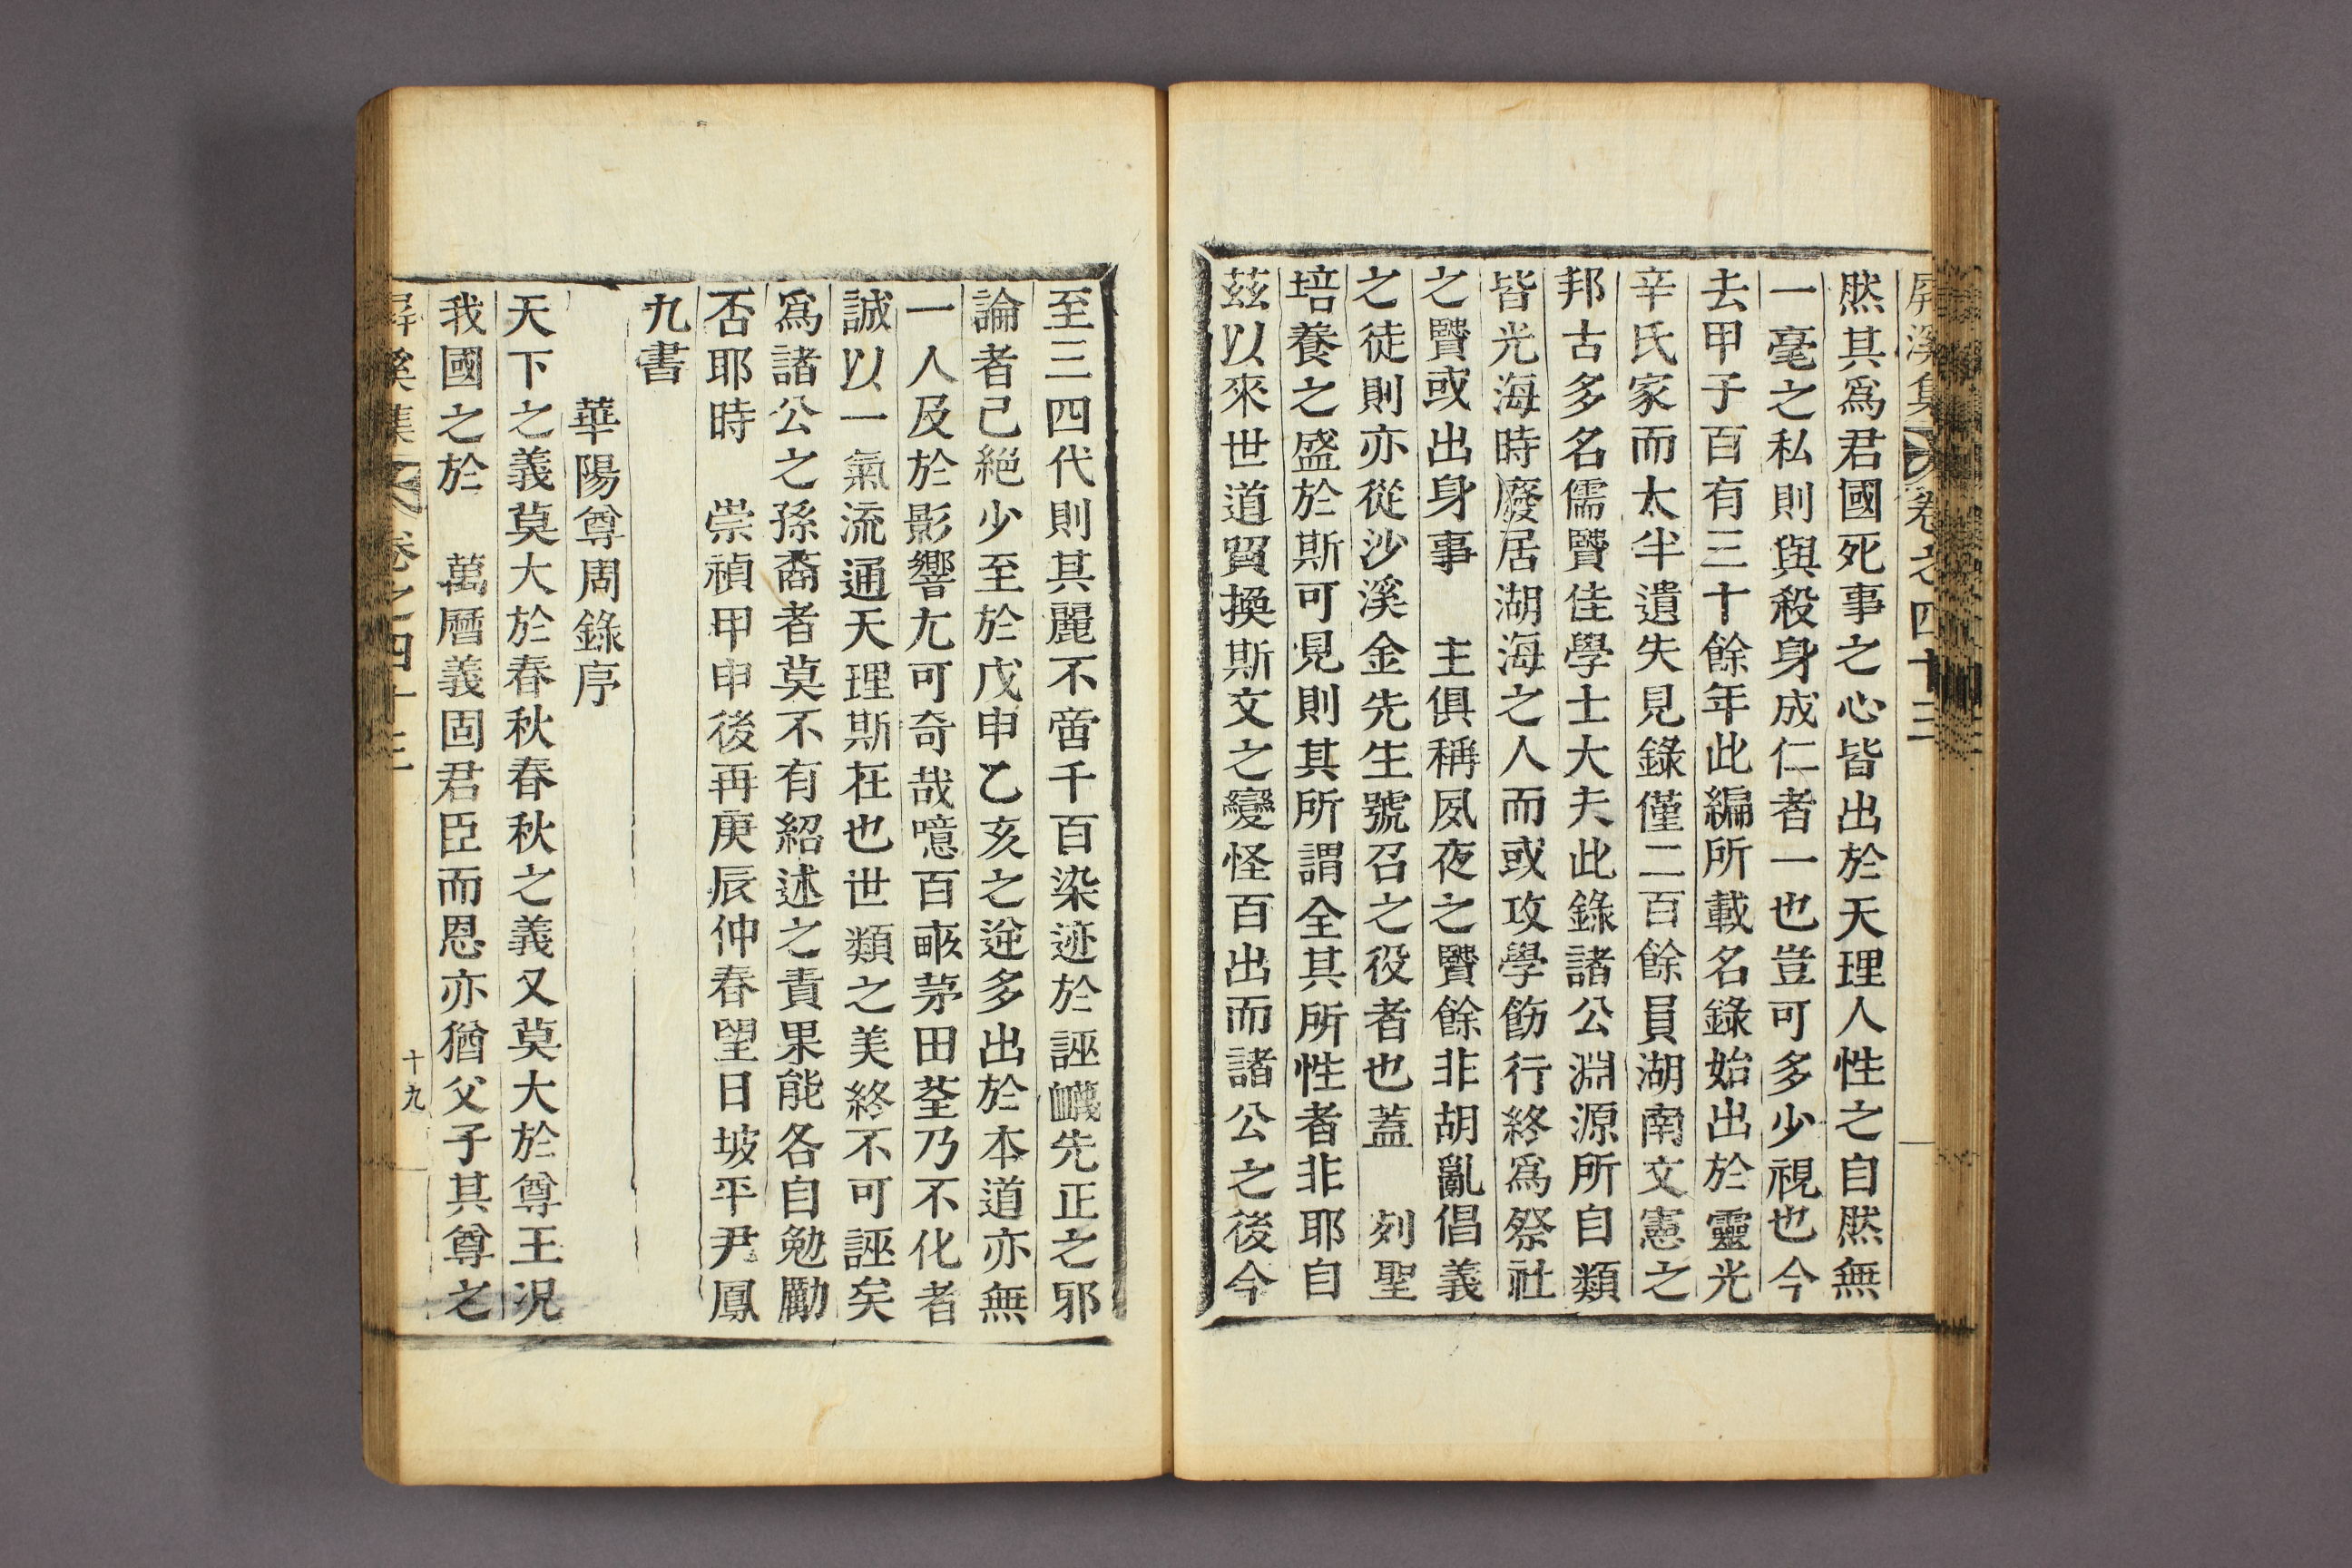 屏溪集 卷之四十三
然其爲君國死事之心皆出於天理人性之自然無
一毫之私則與殺身成仁者一也豈可多少視也今
去甲子百有三十餘年此編所載名錄始出於靈光
辛氏家而太半遺失見錄僅二百餘員湖南文憲之
邦古多名儒賢佳學士大夫此錄諸公淵源所自類
皆光海時廢居湖海之人而或攻學飭行終爲祭社
之賢或出身事 主俱稱夙夜之賢餘非胡亂倡義
之徒則亦從沙溪金先生號召之役者也蓋 列聖
培養之盛於斯可見則其所謂全其所性者非耶自
茲以來世道貿換斯文之變怪百出而諸公之後今
至三四代則其麗不啻千百染迹於誣衊先正之邪
論者已絕少至於戊申乙亥之逆多出於本道亦無
一人及於影響尤可奇哉噫百畞茅田荃乃不化者
誠以一氣流通天理斯在也世類之美終不可誣矣
爲諸公之孫裔者莫不有紹述之責果能各自勉勵
否耶時 崇禎甲申後再庚辰仲春望日坡平尹鳳
九書
華陽尊周錄序
天下之義莫大於春秋春秋之義又莫大於尊王況
我國之於 萬曆義固君臣而恩亦猶父子其尊之
屏溪集 卷之四十三 十九